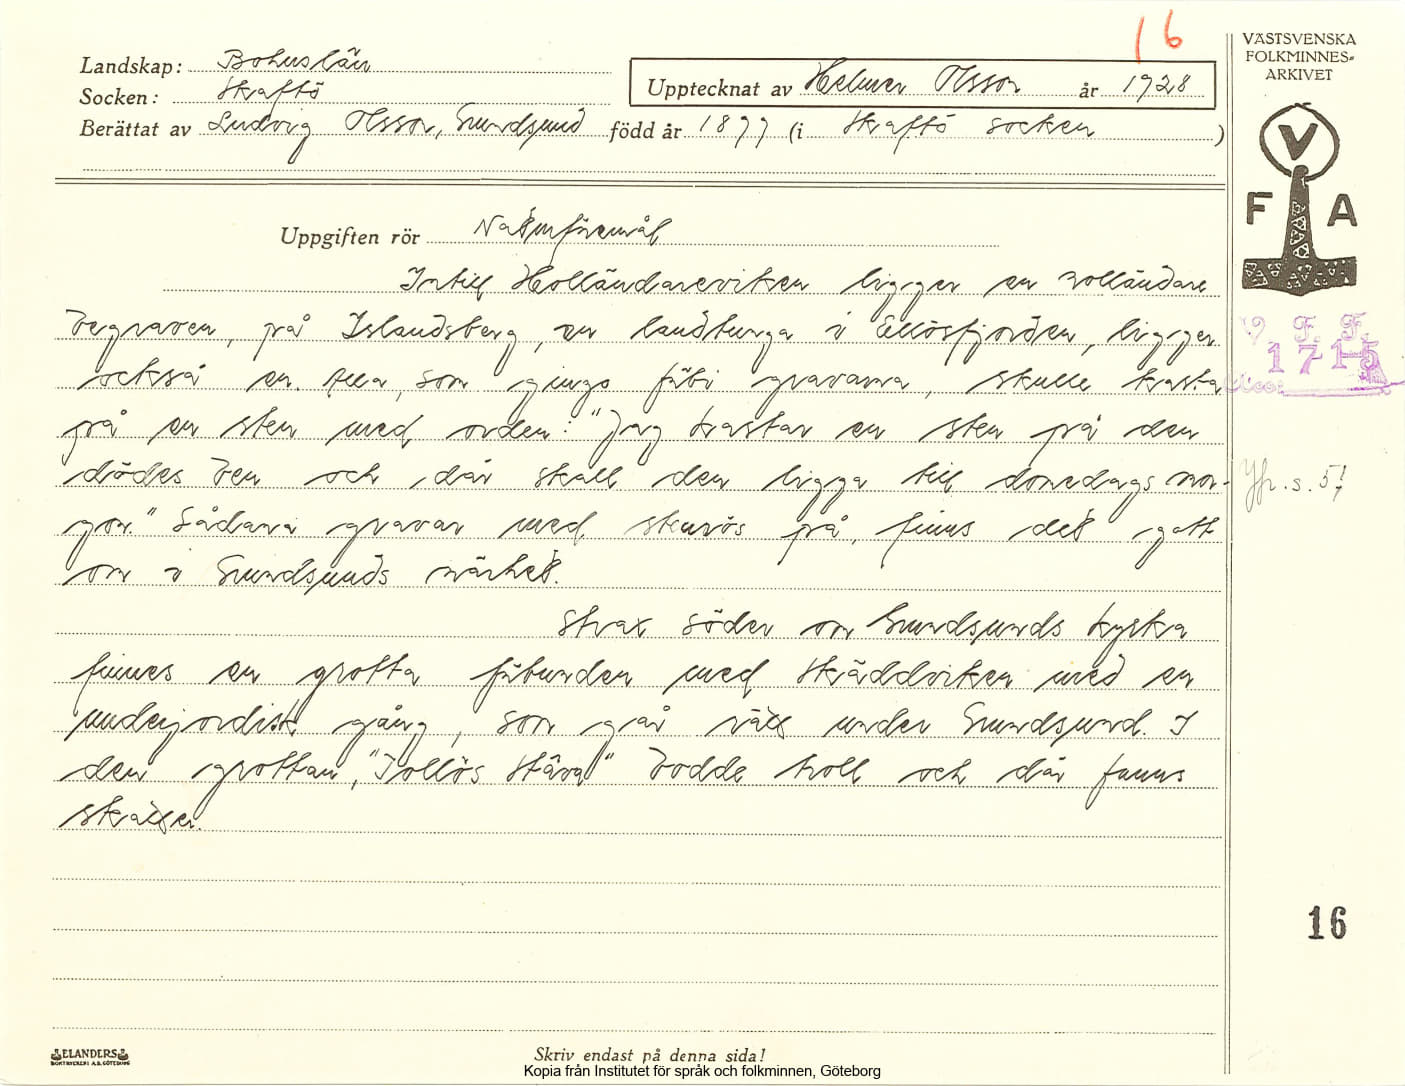 16
VÄSTSVENSKA
FOLKMINNES-
ARKIVET
Landskap: Bohuslän
Socken: Skaftö
Upptecknat av Helmer Olsson år 1928
Berättat av Ludvig Olsson, Grundsund född år 1877 (i Skaftö socken )
V
F A
Uppgiften rör Naturföremål
Intill Holländareviken ligger en holländare
begraven, på Islandsberg, en landtunga i Ellösfjorden, ligger
också en. Alla, som gingo förbi gravarna, skulle kasta
på en sten med orden: "Jag kastar en sten på den
dödes ben och där skall den ligga till domedags mor-
gon." Sådana gravar med stenrös på, finns det gott
om i Grundsunds närhet.
Strax söder om Grundsunds kyrka
finnes en grotta förbunden med Skäddviken med en
underjordisk gång, som går rätt under Grundsund. I
den grottan, "Tollös Stäva" bodde troll och där fanns
skatter.
V. F. F.
1715
Jfr. s. 5!
16
ELANDERS
BOKTRYCKERI A.B. GÖTEBORG
Skriv endast på denna sida!
Kopia från Institutet för språk och folkminnen, Göteborg